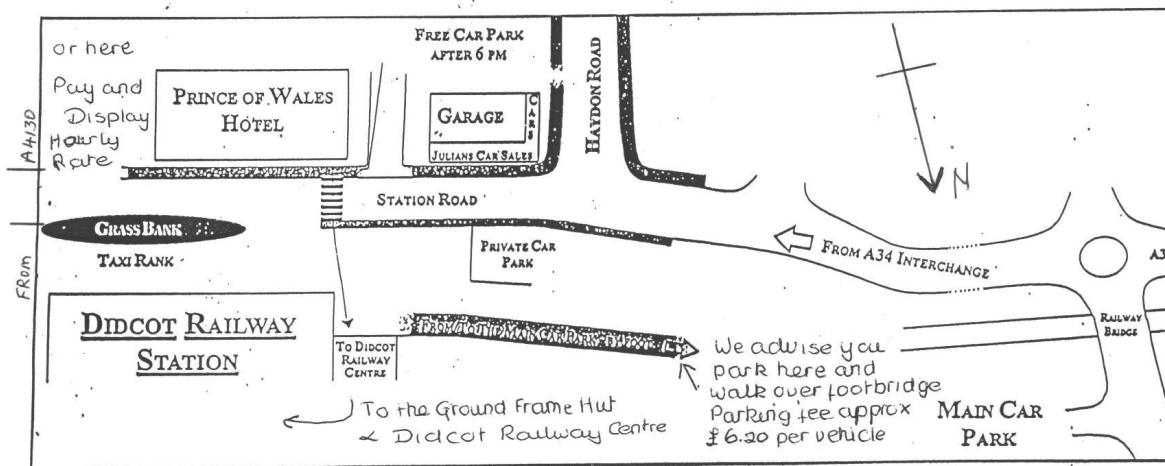 or here
Pay and
Display
Hourly
Rate
A4130
FROM
PRINCE OF WALES
HOTEL
FREE CAR PARK
AFTER 6 PM
GARAGE
CARS
JULIANS CAR SALES
HAYDON ROAD
N
STATION ROAD
GRASS BANK
TAXI RANK
PRIVATE CAR
PARK
FROM A34 INTERCHANGE
A34
RAILWAY
BRIDGE
DIDCOT RAILWAY
STATION
TO DIDCOT
RAILWAY
CENTRE
FROM/TO THE MAIN CAR PARK - BY FOOT
We advise you
park here and
walk over footbridge
Parking fee approx
£6.20 per vehicle
To the Ground Frame Hut
& Didcot Railway Centre
MAIN CAR
PARK